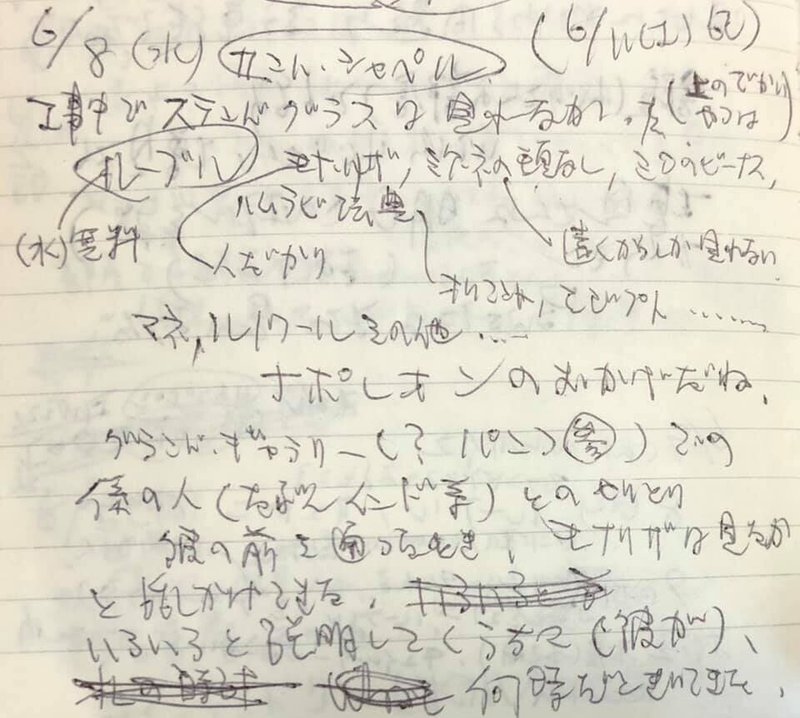 6/8 (水) サント・シャペル (6/11(土)記)
工事中でステンドグラスは見れなかった(上のでかいやつは)
ルーブル モナリザ, ミケ, ネの頭なし, ミロのビーナス,
ハムラビ法典
(水)無料 人だかり 遠くからしか見れない
ギリシャ, エジプト ……
マネ, ルノワールその他 ….
ナポレオンのおかげだね。
グランド・ギャラリー(? パンフ参)での
係の人(たぶんインド系)とのやりとり
彼の前を通ったとき, モナリザは見たか
と話しかけてきた,
いろいろと説明してくうちに(彼が)、
何時だときいてきた。